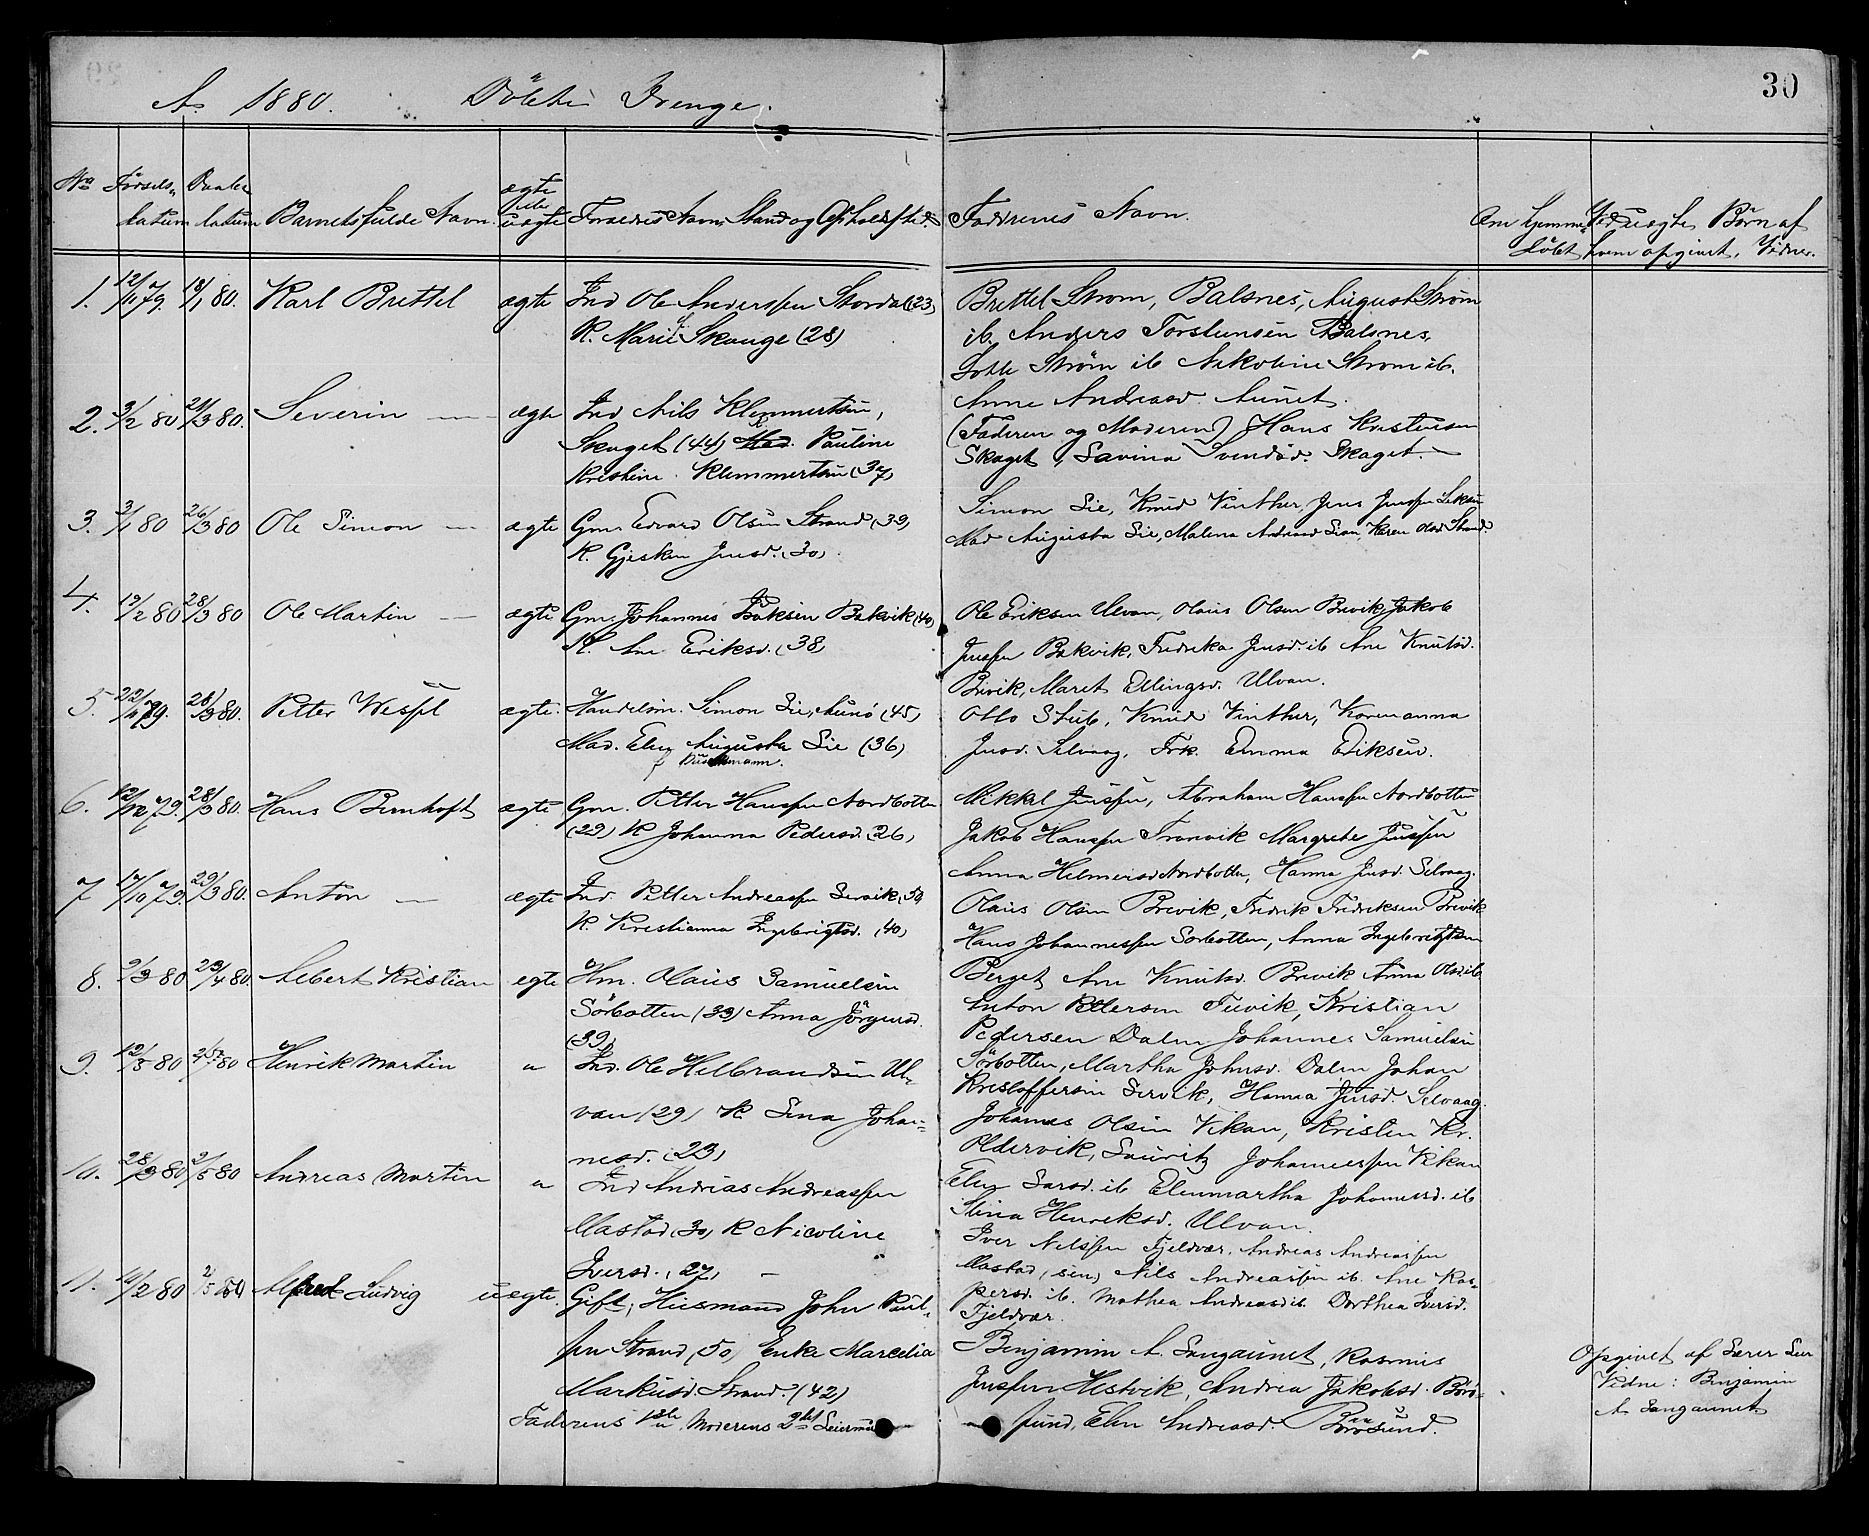 30
A. 1880. Döbte Drenge.
No Födsels- datum Daabs datum Barnets fulde Navn ægte eller uægte Forældres Navn, Stand og Opholdssted. Faddrenes Navn. Om hjemmedöbt Ved uægte Börn af hvem opgivet, Vidner.
1. 12/11 79. 18/1 80. Karl Brettel ægte Ind Ole Anderssen Skordal (23)
K. Marie Skauge (28)
Brettel Strøm, Balsnes, August Strøm
ib. Anders Torstensen Balsnes,
Lotte Strøm ib Nikoline Strøm ib.
Anne Andreasd. Aunet.
2. 3/2 80 21/3 80. Severin ægte Ind Nils Klemmertsen,
Skaget (44) K. Pauline
Kristine Klemmertsen (37)
(Faderen og Moderen) Hans Kristensen
Skaget, Savina Svendsd. Skaget.
3. 3/1 80 26/3 80 Ole Simon ægte Gm. Edvard Olsen Strand (39)
K. Gjesken Jensd. (30)
Simon Sie, Knud Vinther, Jens Jenssen
Mad Augusta Sie, Malena Andreasd Karen Olsd Strand.
4. 19/2 80 28/3 80 Ole Martin ægte Gm. Johannes Bakvik (40)
K. Ane Eriksd. (38)
Ole Eriksen Ulvan, Olaus Olsen Brevik, Jakob
Jenssen Bakvik, Fredrika Jensd. ib Ane Knutsd.
Brevik, Maret Ellingsd. Ulvan.
5. 22/11 79. 28/3 80. Petter Wessel ægte. Handelsm. Simon Sie, (45)
Mad. Elen Augusta Sie (36)
Otto Stub, Knud Vinther, Korenanna
Jensd. Selvaag, Frk. Emma Eriksen.
6. 12/12 79. 28/3 80. Hans Bernhoft ægte Gm. Petter Hanssen Nordbotten
(29) K Johanna Pedersd. (26)
Mikkel Jenssen, Abraham Hanssen Nordbotten
Jakob Hanssen Tranvik Margrete Jenssen
Anna Helmersd Nordbotten, Hanna Jensd. Selvaag.
7 17/10 79. 29/3 80. Anton ægte Ind. Petter Andreassen Servik
K. Kristianna Ingebrigtsd. (40)
Olaus Olsen Brevik, Fredrik Fredriksen Brevik
Hans Johannessen Sorbotten, Anna Ingebrigtsen
Berget Ane Knutsd. Brevik Anna Olsd. ib
8. 9/3 80 23/4 80. Albert Kristian egte Hm. Olaus Samuelsen
Sörbotten (33) Anna Jörgensd.
(39)
Anton Pettersen Kristian
Pedersen Dalen Johannes Samuelsen
Sörbotten, Martha Johnsd. Dalen Johan
Kristoffersen Servik, Hanna Jensd. Selvaag.
9. 12/3 80 80 Henrik Martin " Ind. Ole Helbrandsen Ul-
van (29) K Lena Johan-
nesd. (23)
Johannes Olsen Vikan, Kristen Kr.
Oldervik, Lauritz Johannessen Vikan
Elen Larsd. ib Elenmartha Johannesd. ib
Stina Henriksd. Ulvan.
10. 28/3 80 2/5 80 Andreas Martin " Ind Andreas Andreassen
Mastad (30) K Nicoline
Iversd. (27)
Iver Nilssen Fjeldvær. Andreas Andreassen
Mastad (sen) Nils Andreassen ib. Ane Kas-
persd. ib. Mathea Andreasd ib. Dorthea Iversd.
Fjeldvær.
11. 11/2 80 2/5 80 Alfred Ludvig uægte. Gift, Husmand John Paul-
sen Strand (50) Enke Marcelia
Markusd. Strand. (42)
Faderens 1ste, Moderens 2det Leiermaal
Benjamin A. Langaunet, Rasmus
Jenssen Hestvik, Andrea Jakobsd. Börö-
sund, Elen Andreasd. Börösund.
Opgivet af Lærer Sie
Vidne: Benjamin
A. Langaunet